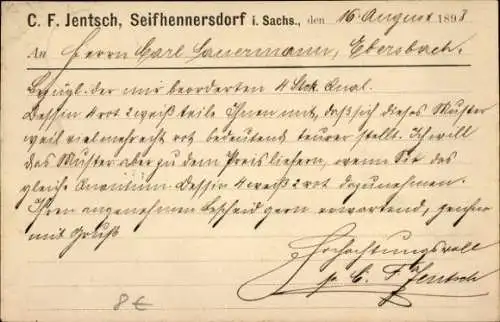 C. F. Jentsch, Seifhennersdorf i. Sachs., den 16. August 1893
An Herrn Carl Lauermann, Ebersbach.
Bezügl. der mir beorderten 4 Stck. Qual.
Dessin 4 rot 2 weiß teile Ihnen mit, daß sich dieses Muster
weil viel mehr echt rot bedeutend teurer stellt. Ich will
das Muster aber zu dem Preis liefern, wenn Sie das
gleiche Quantum Dessin 4 weiß 2 rot dazunehmen.
Ihren angenehmen Bescheid gern erwartend, zeichne
mit Gruß
Hochachtungsvoll
p. C. F. Jentsch
8 €